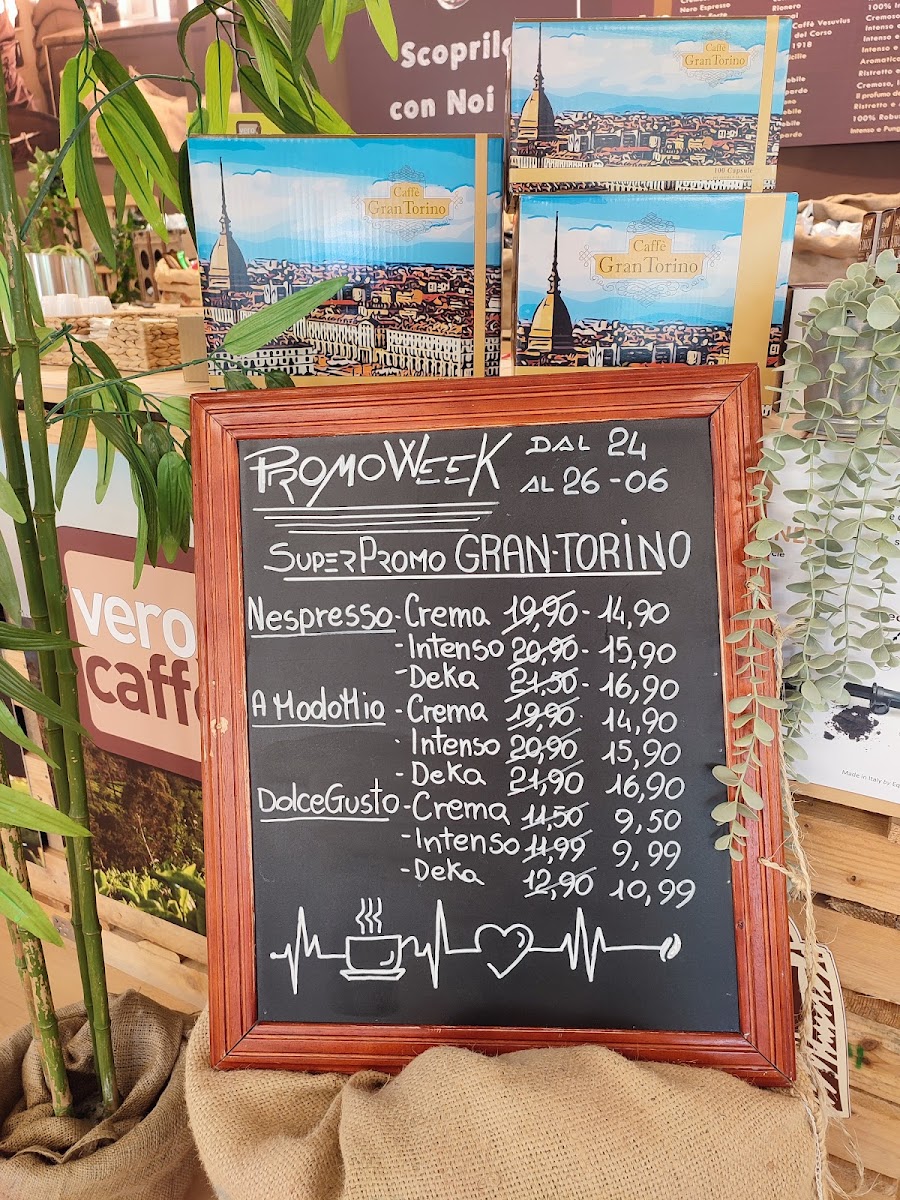 Scoprilo
con Noi
Nero Espresso
Cremoso
Intenso e
Intenso e
Aromatico
Ristretto e
Cremoso, I
Il profumo de
Ristretto e
100% Robus
Intenso e Pung
Caffè Vesuvius
del Corso
1918
Caffè
Gran Torino
100 Capsule
Caffè
Gran Torino
Caffè
Gran Torino
PROMOWEEK DAL 24
AL 26-06
SUPERPROMO GRAN-TORINO
Nespresso - Crema 19,90 - 14,90
- Intenso 20,90 - 15,90
- Deka 21,50 - 16,90
A ModoMio - Crema 19,90 - 14,90
- Intenso 20,90 15,90
- Deka 21,90 16,90
DolceGusto - Crema 11,50 9,50
- Intenso 11,99 9,99
- Deka 12,90 10,99
vero
caffè
Made in Italy by Eq